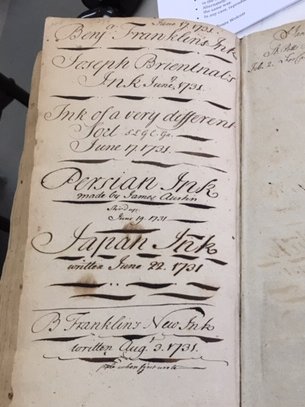 June 17. 1731.
a
Benj Franklin's Ink
Joseph Brientnal's
Ink June, 1731.
Ink of a very different
Sort
June 17, 1731.
Persian Ink
made by James Austin
June 19. 1731
Japan Ink
written June 22. 1731
B Franklin's New Ink
written Augt 3. 1731.
pale when first wrote